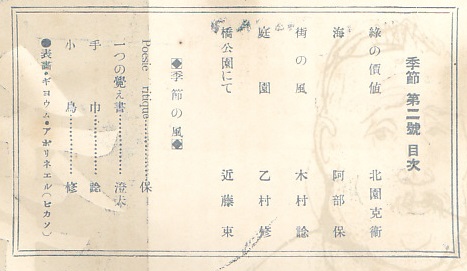 季節 第二號 目次
綠の價値 北園克衞
海 阿部保
街の風 木村諗
庭園 乙村修
橋公園にて 近藤東
◆季節の風◆
Poesie critique………保
一つの覺え書………澄夫
手巾………諗
小鳥………修
●表畵・ギヨウム・アポリネエル(ピカソ)